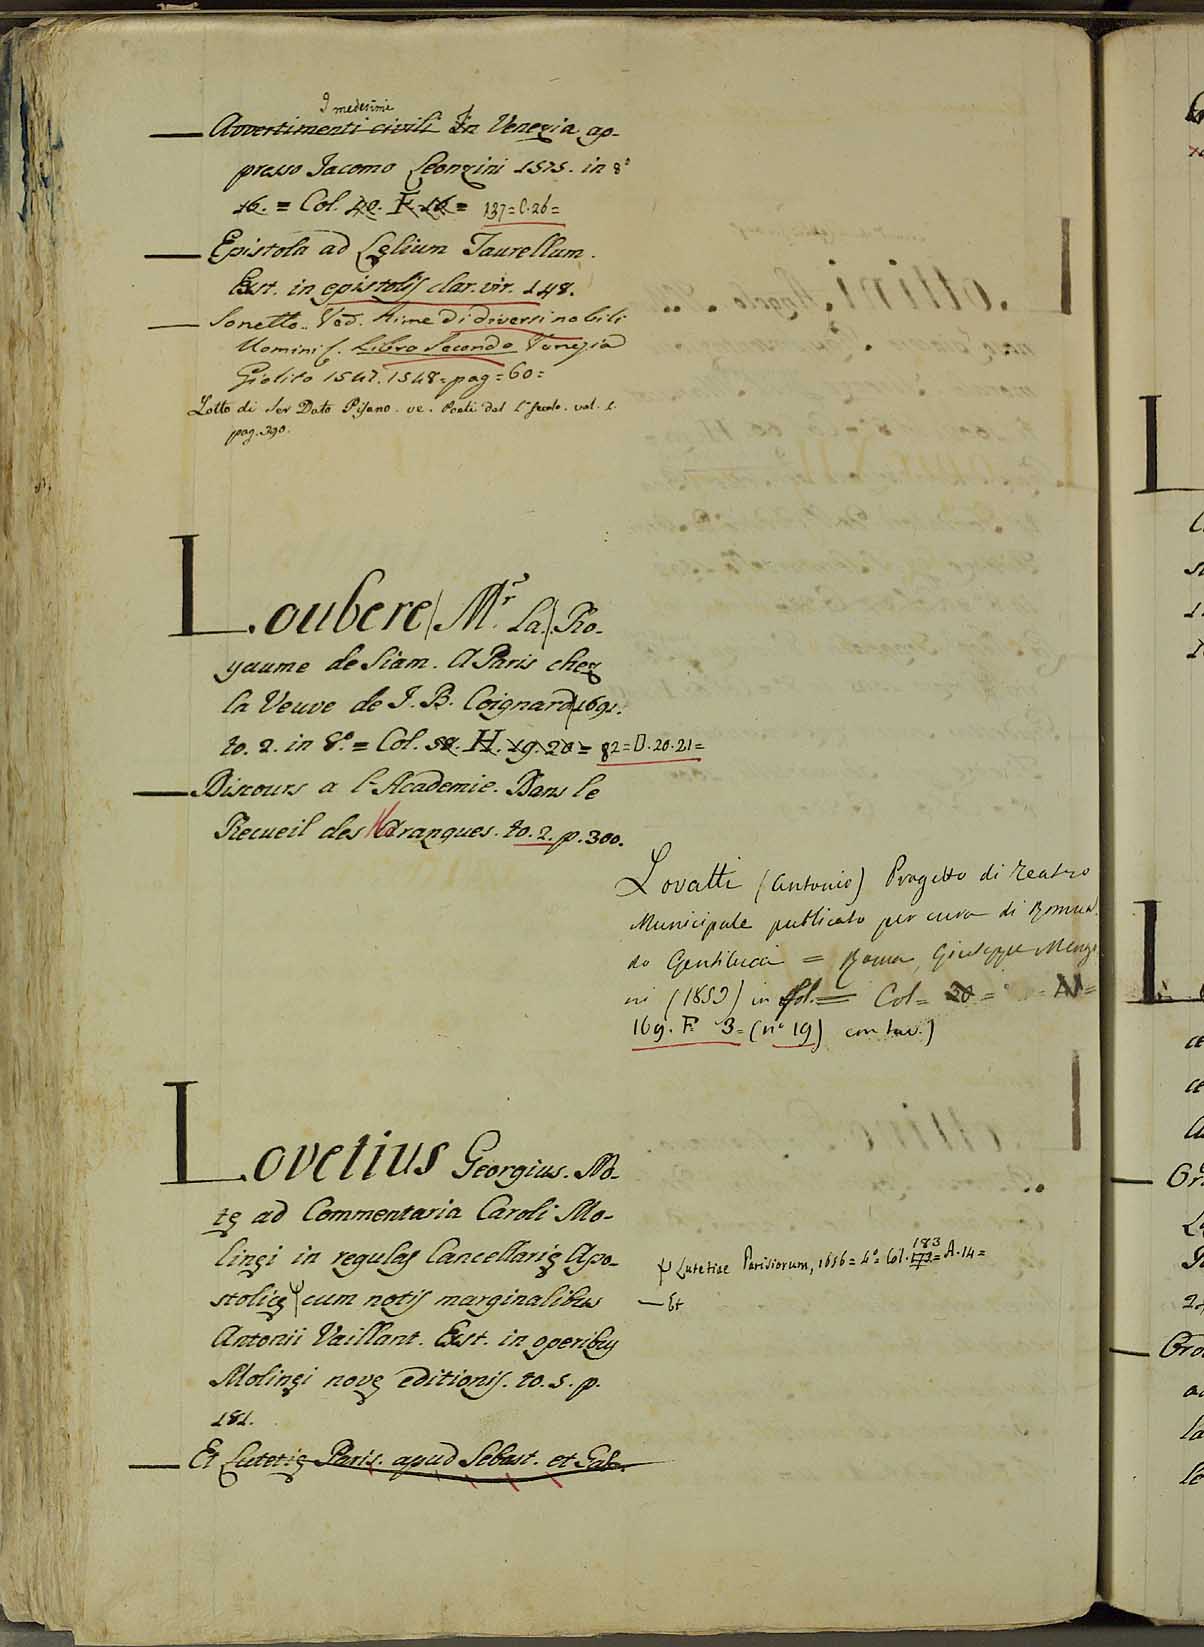 I medesimi
— Avvertimenti civili In Venezia ap-
presso Iacomo Leonzini 1575. in 8º
16. = Col. 40. F. 16 = 137 = C. 26 =
— Epistola ad Lęlium Taurellum.
Exst. in epistolis clar. vir. 148.
— Sonetto. Ved. Rime di diversi nobili
Uomini &. Libro Secondo Venezia
Giolito 1547. 1548 = pag = 60 =
Lotto di Ser Dato Pisano. ve. Poeti del 1º secolo. vol. 1.
pag. 390.
Loubere (Mr. La) Ro-
yaume de Siam. A Paris chez
la Veuve de J. B. Coignard 1691.
to. 2. in 8.º = Col. 50. H. 19. 20 = 82 = D. 20. 21 =
— Discours a l'Academie. Dans le
Recueil des Haranques. to. 2. p. 300.
Lovatti (Antonio) Progetto di Teatro
Municipale publicato per cura di Romual
do Gentilucci = Roma, Giuseppe Mengi
ni (1859) in fol. = Col = 20 =
169. F. 3 = (nº 19) con tav.)
Lovetius Georgius. No-
tę ad Commentaria Caroli Mo-
linęi in regulas Cancellarię Apo-
stolicę ψ cum notis marginalibus
Antonii Vaillant. Exst. in operibus
Molinęi novę editionis. to. 5. p.
181.
— Et Lutetię Paris. apud Sebast. et Gab.
ψ Lutetiae Parisiorum, 1656 = 4º = Col. 173 183 = A. 14 =
— Et